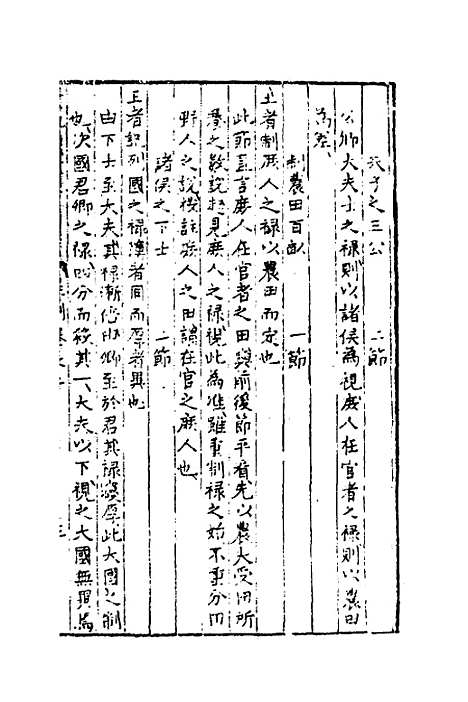 天子之三公　二節
公卿大夫士之祿則以諸侯為視庶人在官者之祿則以農田
為差
制農田百畝　一節
王者制庶人之祿以農田而定也
此節言庶人在官者之田與前後節平看先以農夫受田所
食之數說起見庶人之祿視此為準雖重制祿之始不重分田
野人之說按註庶人之田謂在官之庶人也
諸侯之下士　一節
王者記列國之祿薄者同而厚者異也
由下士至大夫其祿漸倍由卿至於君其祿寖厚此大國之制
也次國君卿之祿四分而殺其一大夫以下視之大國無異焉